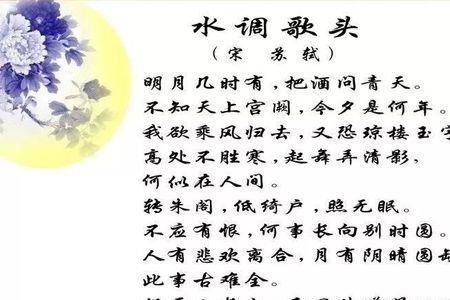 水调歌头
（宋 苏轼）
明月几时有，把酒问青天。
不知天上宫阙，今夕是何年。
我欲乘风归去，又恐琼楼玉宇
高处不胜寒，起舞弄清影，
何似在人间。
转朱阁，低绮户，照无眠。
不应有恨，何事长向别时圆。
人有悲欢离合，月有阴晴圆缺
此事古难全。